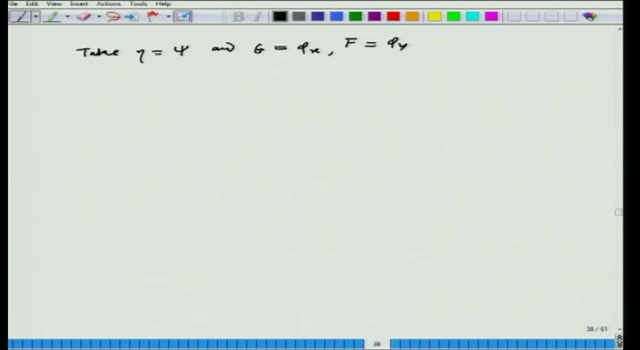 File Edit View Insert Actions Tools Help
Take η = ψ and G = φx, F = φy
38 / 61
38